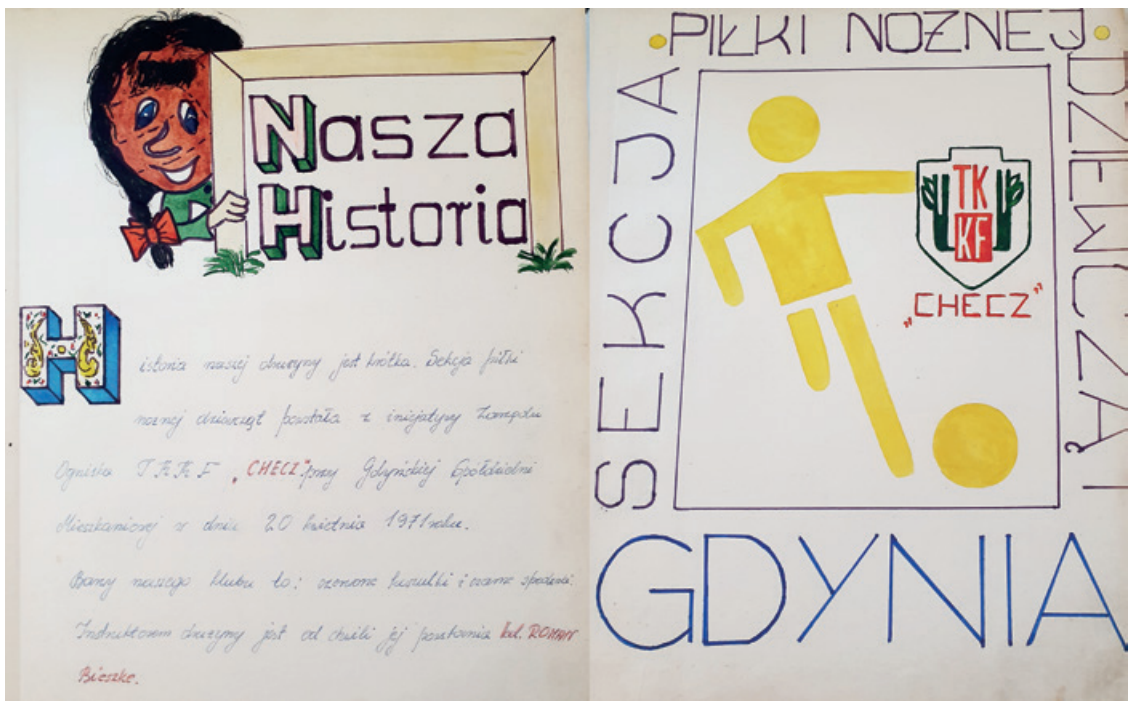 Nasza
Historia
Historia naszej drużyny jest krótka. Sekcja piłki
nożnej dziewcząt powstała z inicjatywy Zarządu
Ogniska TKKF „CHECZ” przy Gdyńskiej Spółdzielni
Mieszkaniowej w dniu 20 kwietnia 1971 roku.
Barwy naszego klubu to: czerwone koszulki i czarne spodenki.
Instruktorem drużyny jest od chwili jej powstania kol. ROMAN
Bieszke.
SEKCJA
PIŁKI NOŻNEJ
DZIEWCZĄT
TK
KF
„CHECZ”
GDYNIA